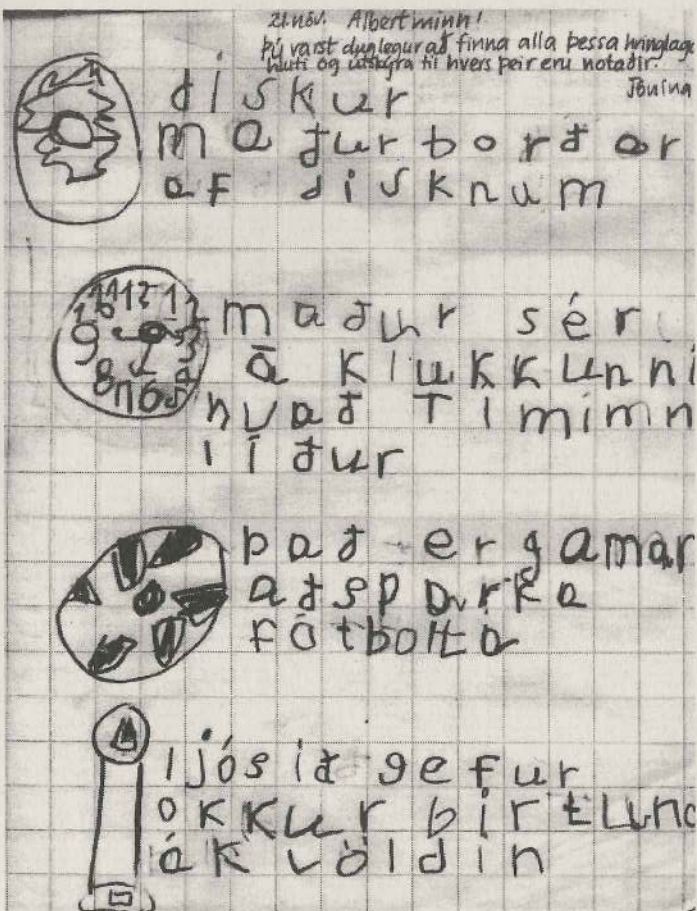 21.nóv. Albert minn!
Þú varst duglegur að finna alla þessa hringlaga
hluti og útskýra til hvers þeir eru notaðir.
Jónína
diskur
maður borðar
af disknum
11 12 1
10 2
9 3
8 4
7 6 5
maður sér
á klukkunni
hvað tíminn
líður
það er gamar
að sparka
fótbolta
ljósið gefur
okkur birtuna
á kvöldin